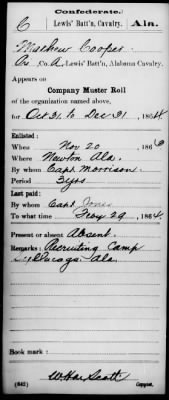 Confederate.
C Lewis' Batt'n, Cavalry. Ala.
Mathew Cooper
Co. A, Lewis' Batt'n, Alabama Cavalry.
Appears on
Company Muster Roll
of the organization named above,
for Oct 31, to Dec 31, 1864.
Enlisted:
When Nov 20, 186
Where Newton Ala.
By whom Capt. Morrison.
Period 3 yrs
Last paid:
By whom Capt. Jones
To what time Feby 29, 1864.
Present or absent Absent.
Remarks: Recruiting Camp
Ala.
Book mark:
Scott
(642) Copyist.